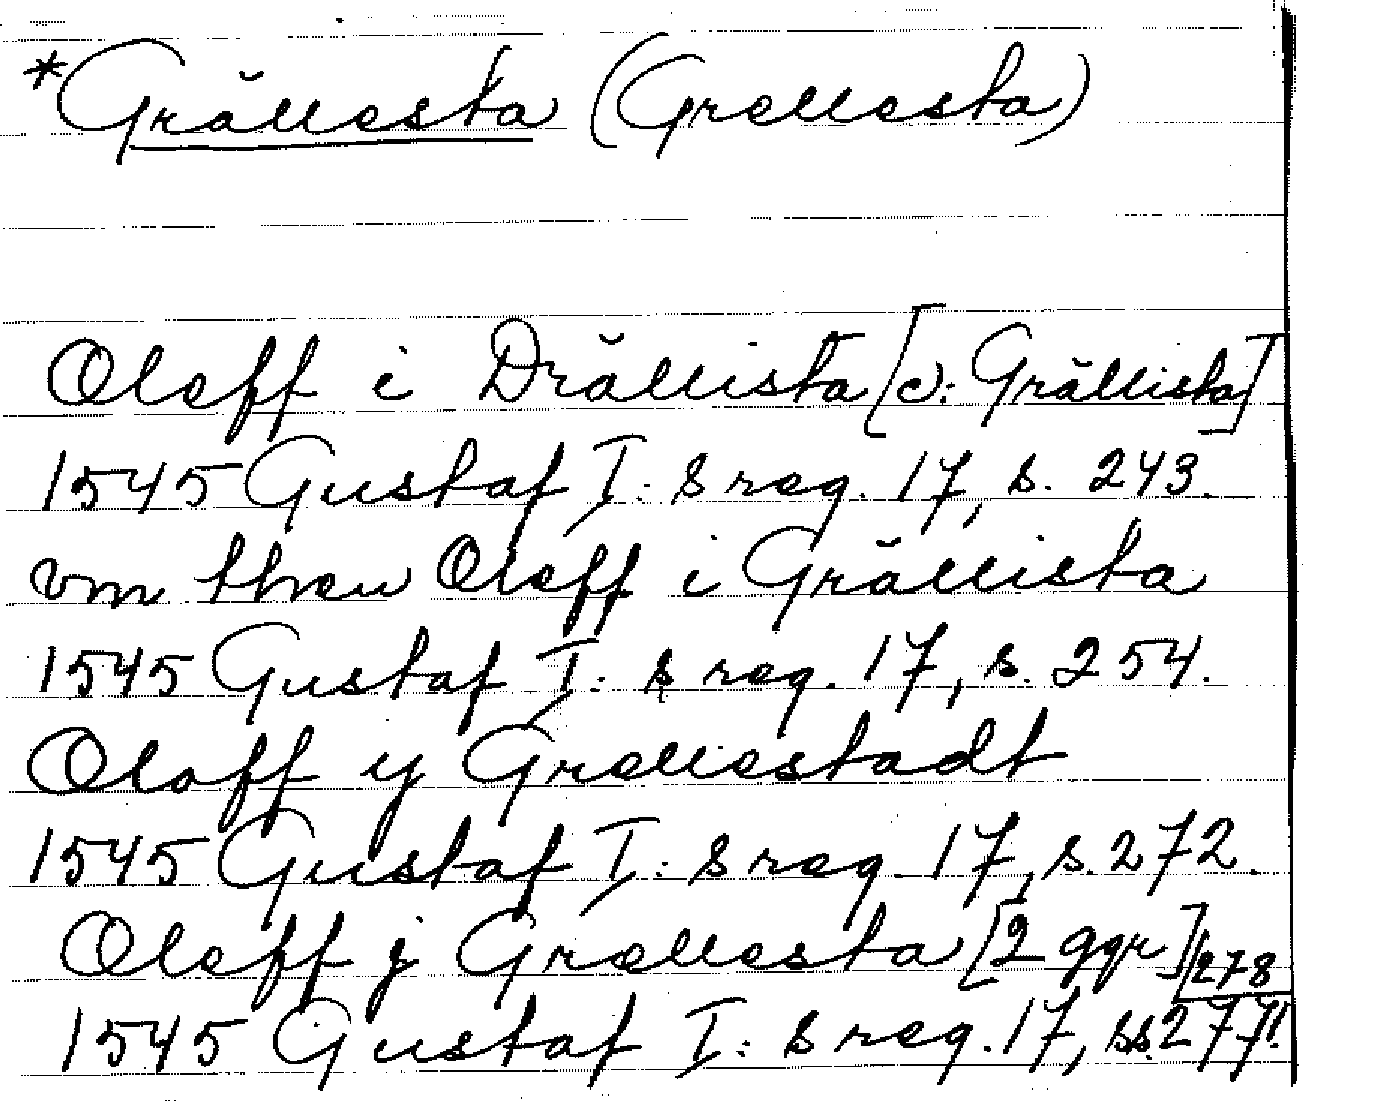 *Grällesta (Grellesta)
Oleff i Drällista [ɔ: Grällista]
1545 Gustaf I:s reg. 17, s. 243.
vm then Oleff i Grällista
1545 Gustaf I:s reg. 17, s. 254.
Oloff y Grellestadt
1545 Gustaf I:s reg. 17, s. 272.
Oleff j Grællesta [2 ggr] 278
1545 Gustaf I:s reg. 17, ss. 277!